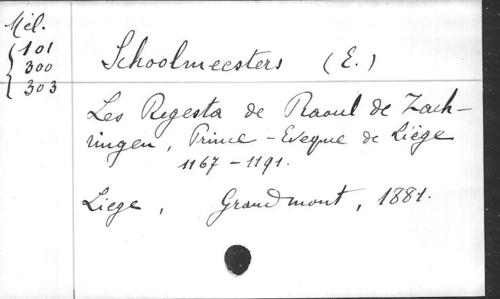 Mél.
101
300
303
Schoolmeesters (E.)
Les Regesta de Raoul de Zaeh-
ringen, Prince-Eveque de Liège
1167-1191.
Liege, Grandmont, 1881.